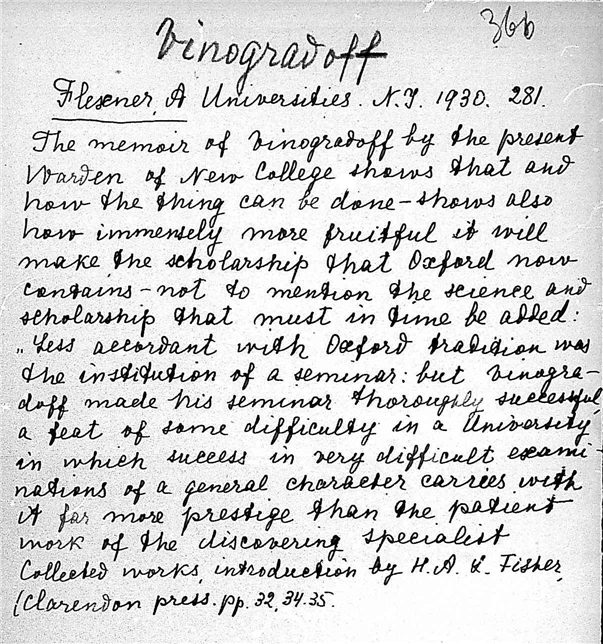 366
Vinogradoff
Flexner, A Universities. N.Y. 1930. 281.
The memoir of Vinogradoff by the present
Warden of New College shows that and
how the thing can be done – shows also
how immensely more fruitful it will
make the scholarship that Oxford now
contains – not to mention the science and
scholarship that must in time be added:
„Less accordant with Oxford tradition was
the institution of a seminar: but Vinogra-
doff made his seminar thoroughly successful,
a feat of some difficulty in a University
in which success in very difficult exami-
nations of a general character carries with
it far more prestige than the patient
work of the discovering specialist
Collected works, introduction by H. A. L. Fisher,
(Clarendon press. pp. 32, 34.35.